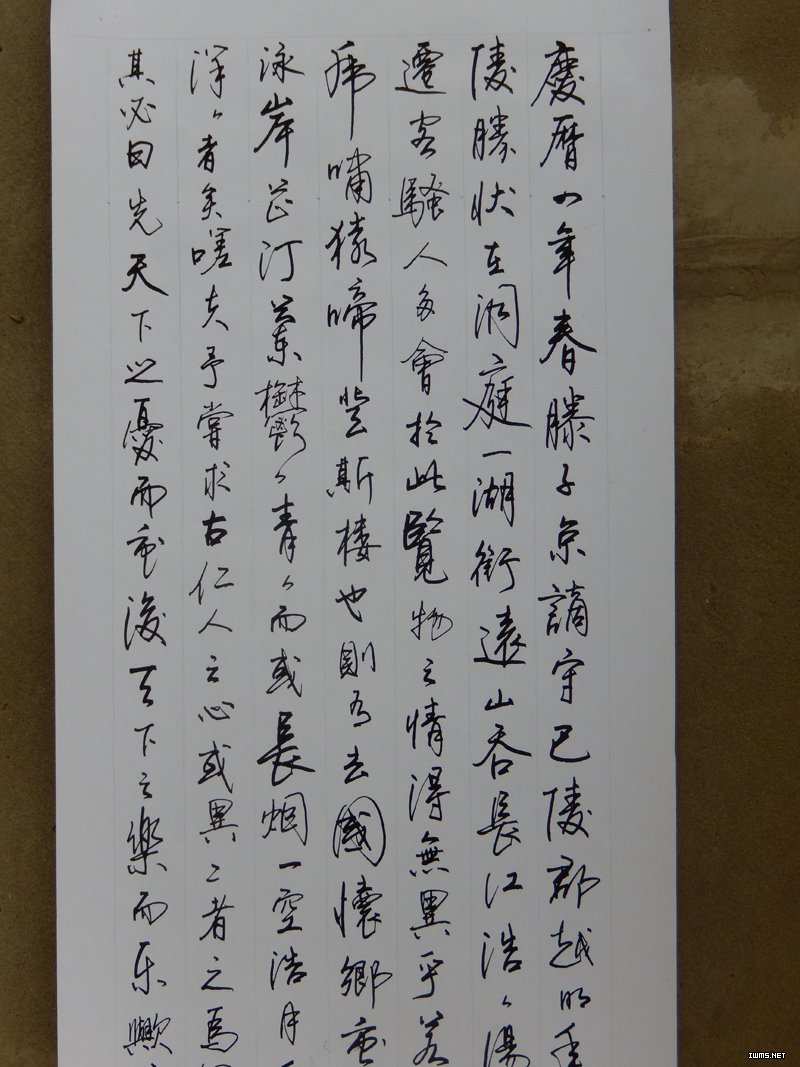 慶曆四年春滕子京謫守巴陵郡越明年
陵勝狀在洞庭一湖銜遠山吞長江浩々湯
遷客騷人多會於此覽物之情得無異乎若
虎嘯猿啼登斯樓也則有去國懷鄉
泳岸芷汀蘭鬱々青々而或長烟一空浩月
洋々者矣嗟夫予嘗求古仁人之心或異二者之為
其必曰先天下之憂而憂後天下之樂而樂歟
IWMS.NET